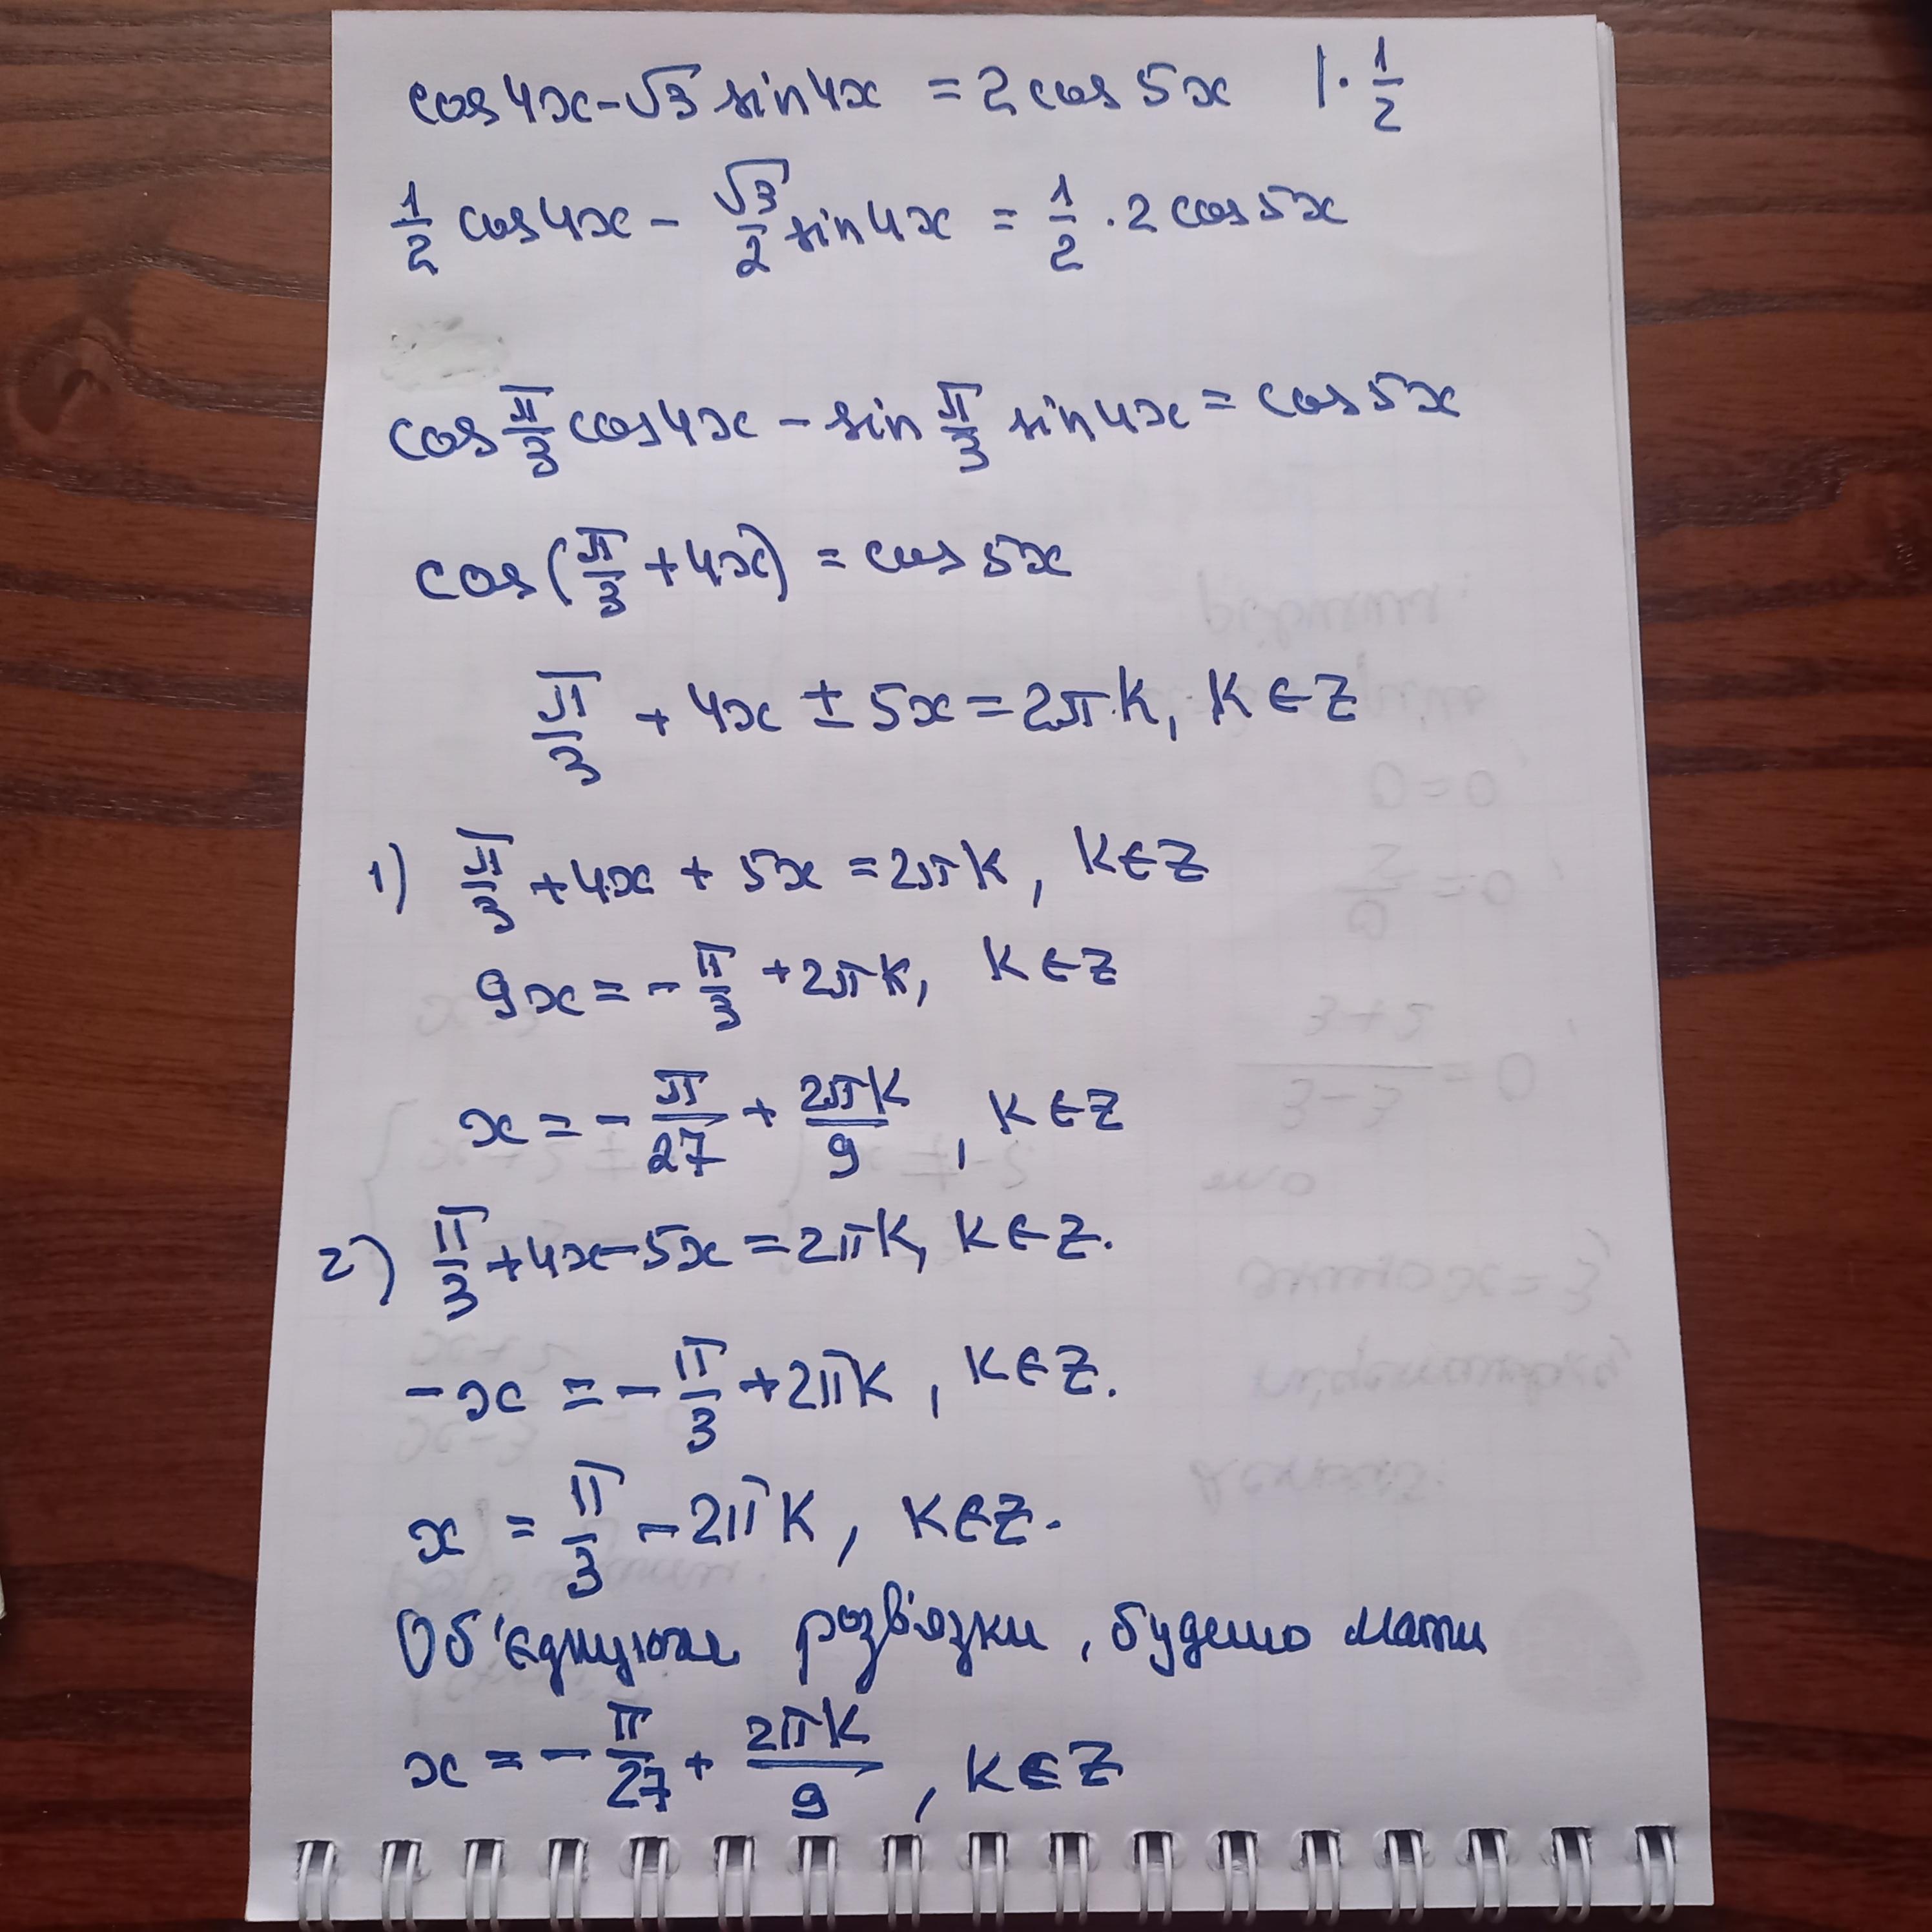 cos4x-√3 sin4x = 2cos 5x |·1/2
1/2 cos4x - √3/2 sin4x = 1/2 · 2 cos5x
cos π/3 cos4x - sin π/3 sin4x = cos 5x
cos(π/3 + 4x) = cos 5x
π/3 + 4x ± 5x = 2πk, k∈Z
1) π/3 + 4x + 5x = 2πk, k∈Z
9x = - π/3 + 2πk, k∈Z
x = - π/27 + 2πk/9, k∈Z
2) π/3 + 4x - 5x = 2πk, k∈Z.
-x = - π/3 + 2πk, k∈Z.
x = π/3 - 2πk, k∈Z.
Об'єднуючи розв'язки, будемо мати
x = - π/27 + 2πk/9, k∈Z